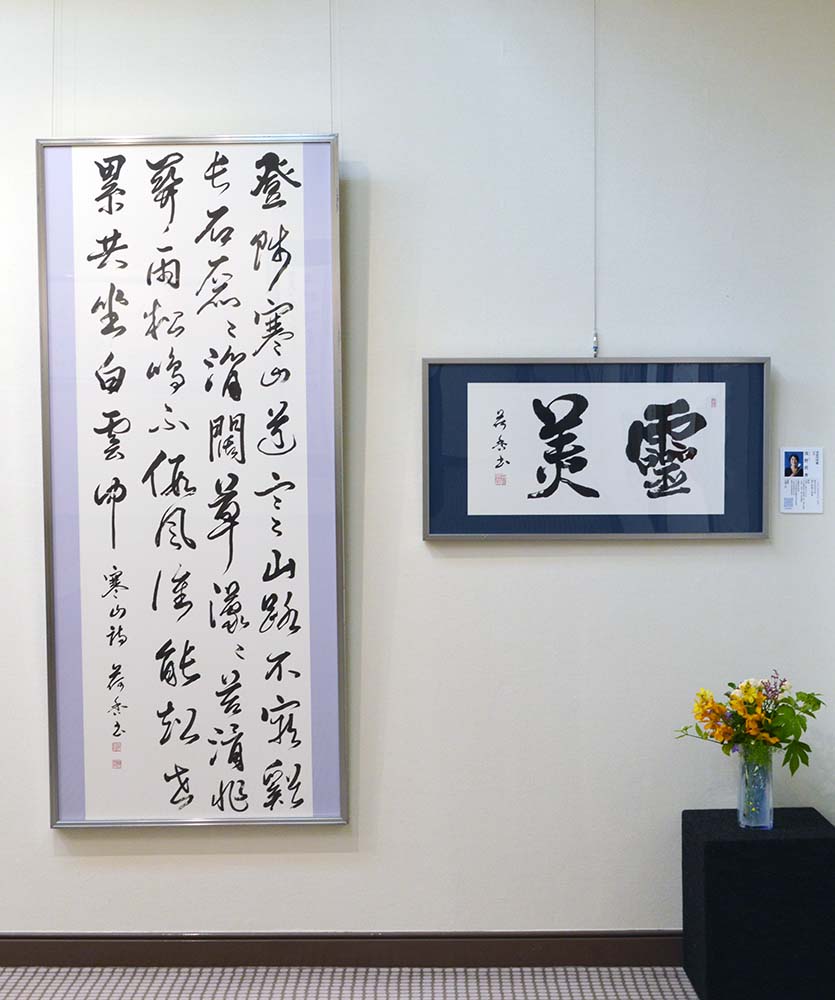 登陟寒山道寒山路不窮谿
長石磊々澗闊草濛々苔滑非
關雨松鳴不假風誰能超世
累共坐白雲中 寒山詩 荷香書
靈美
荷香書